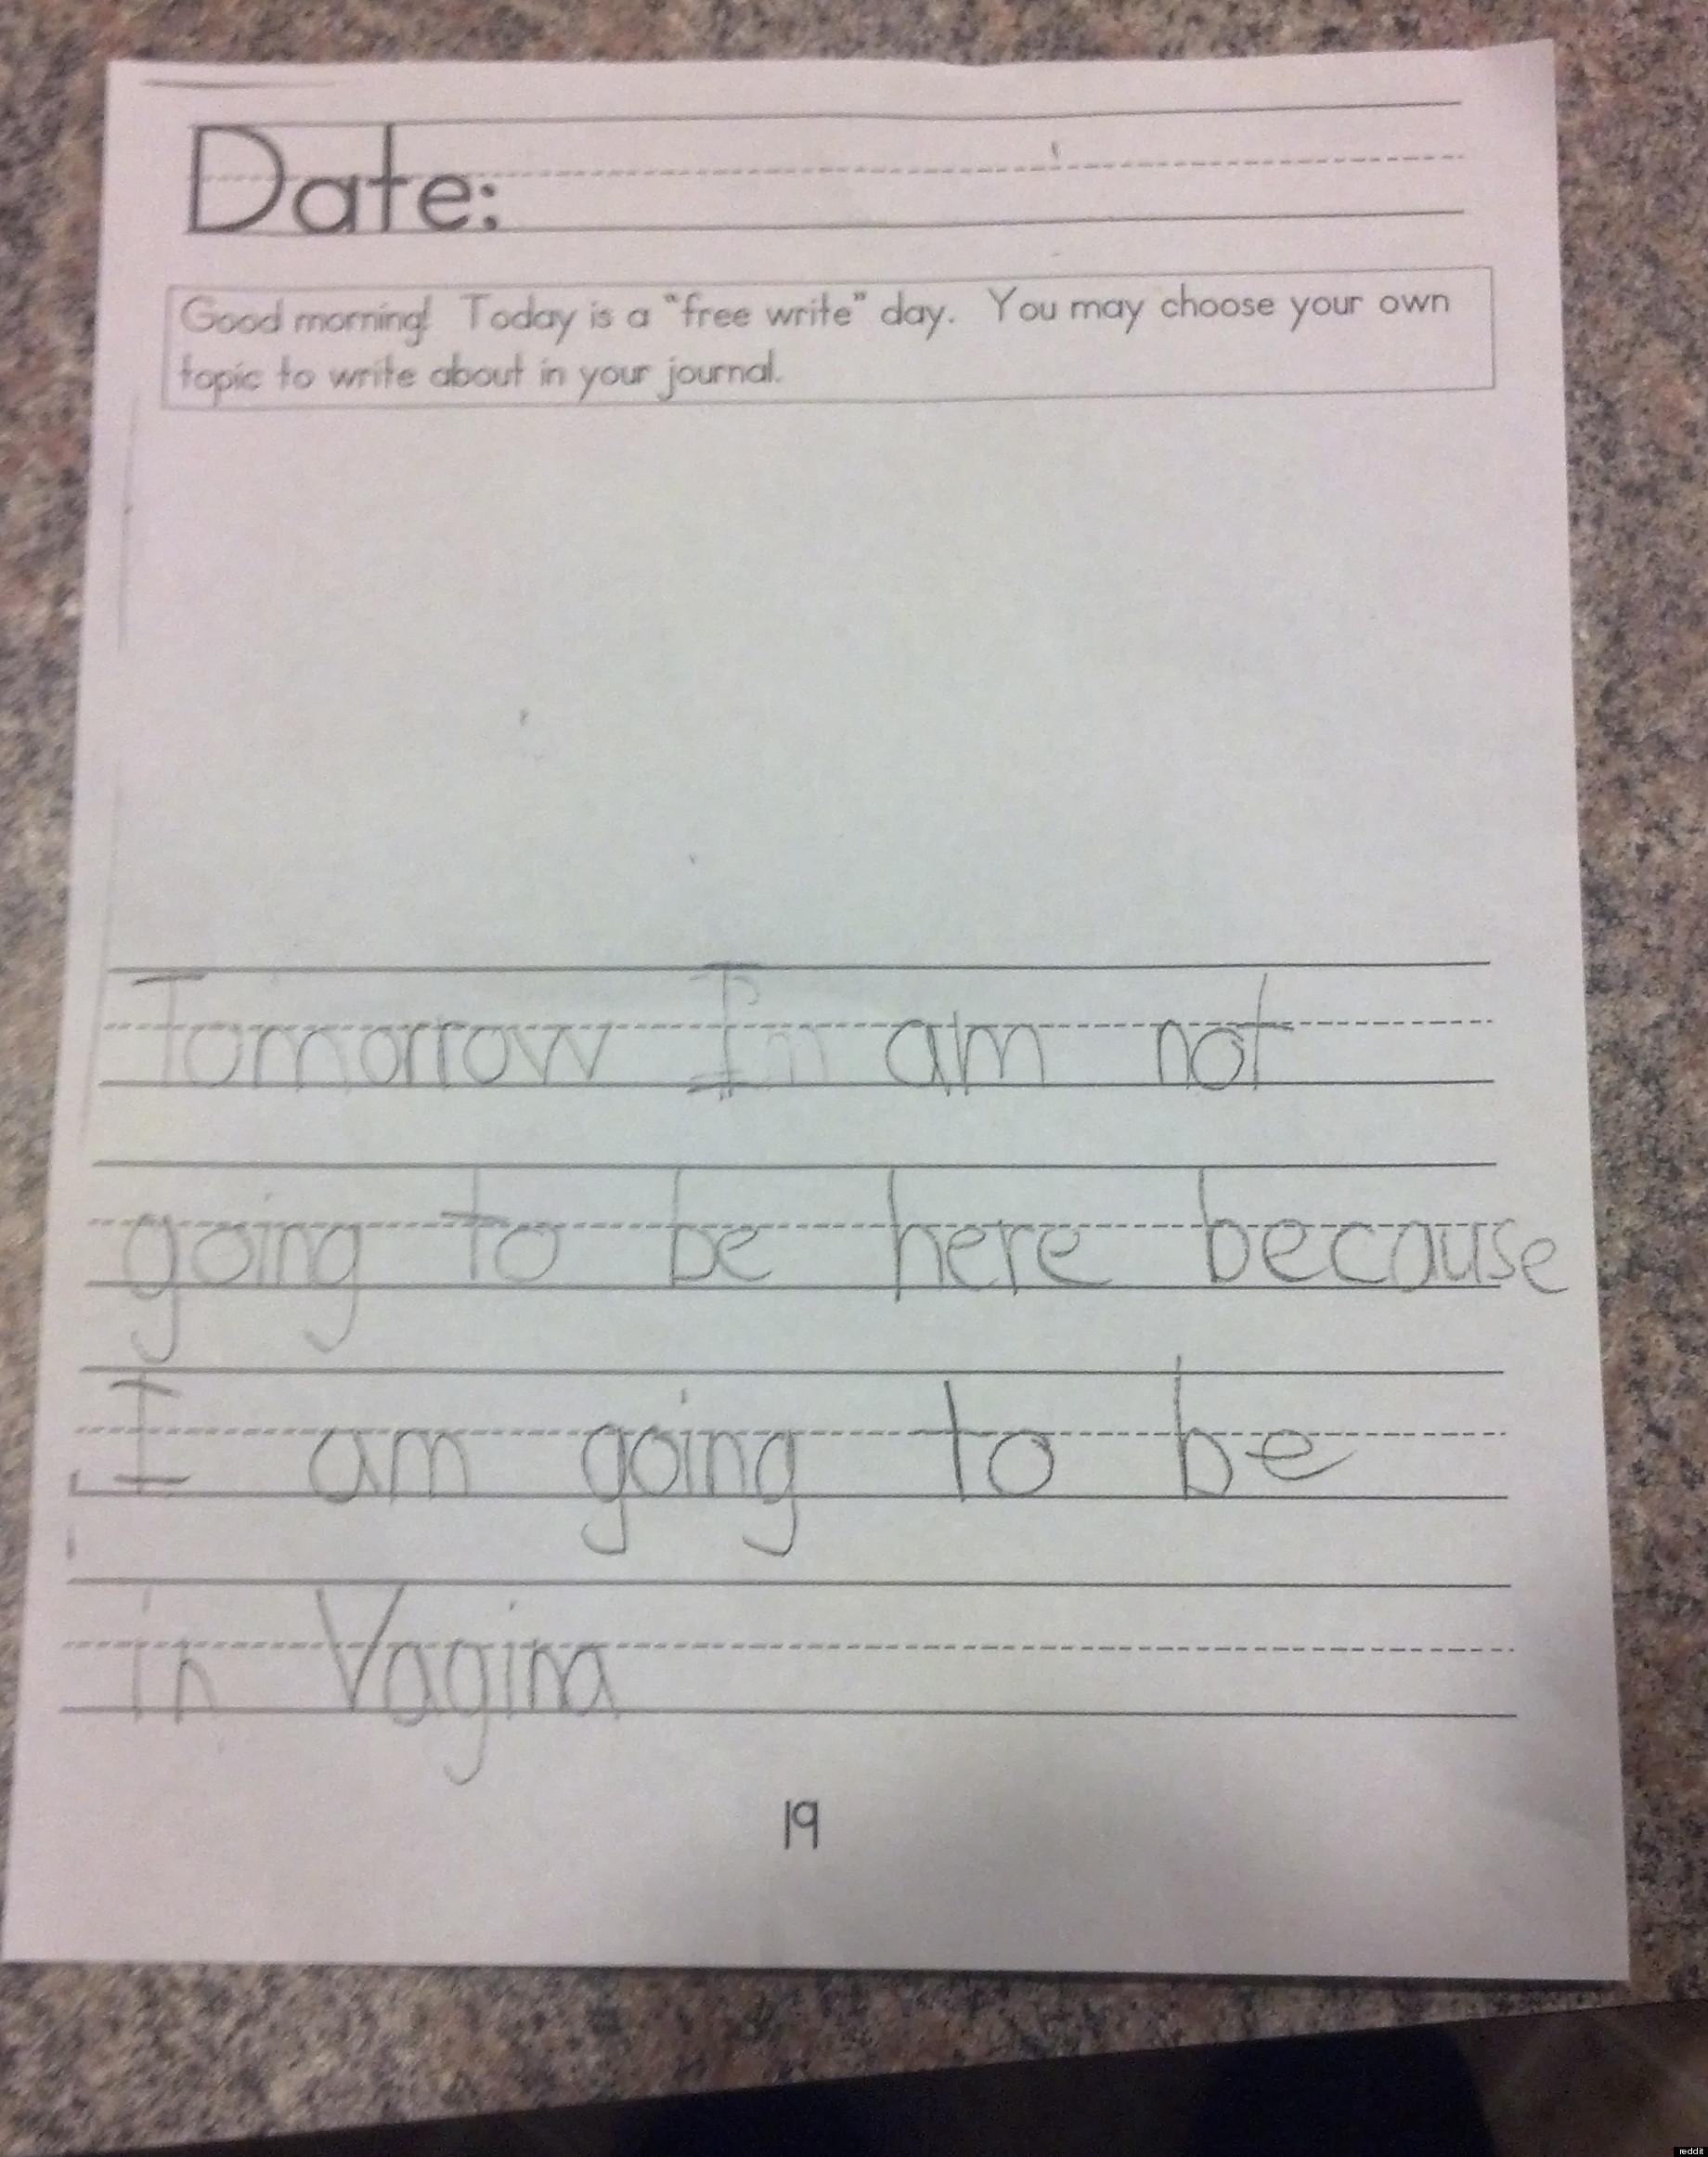 Date:
Good morning! Today is a "free write" day. You may choose your own
topic to write about in your journal.
Tomorrow I am not
going to be here because
I am going to be
in Vagina
19
reddit